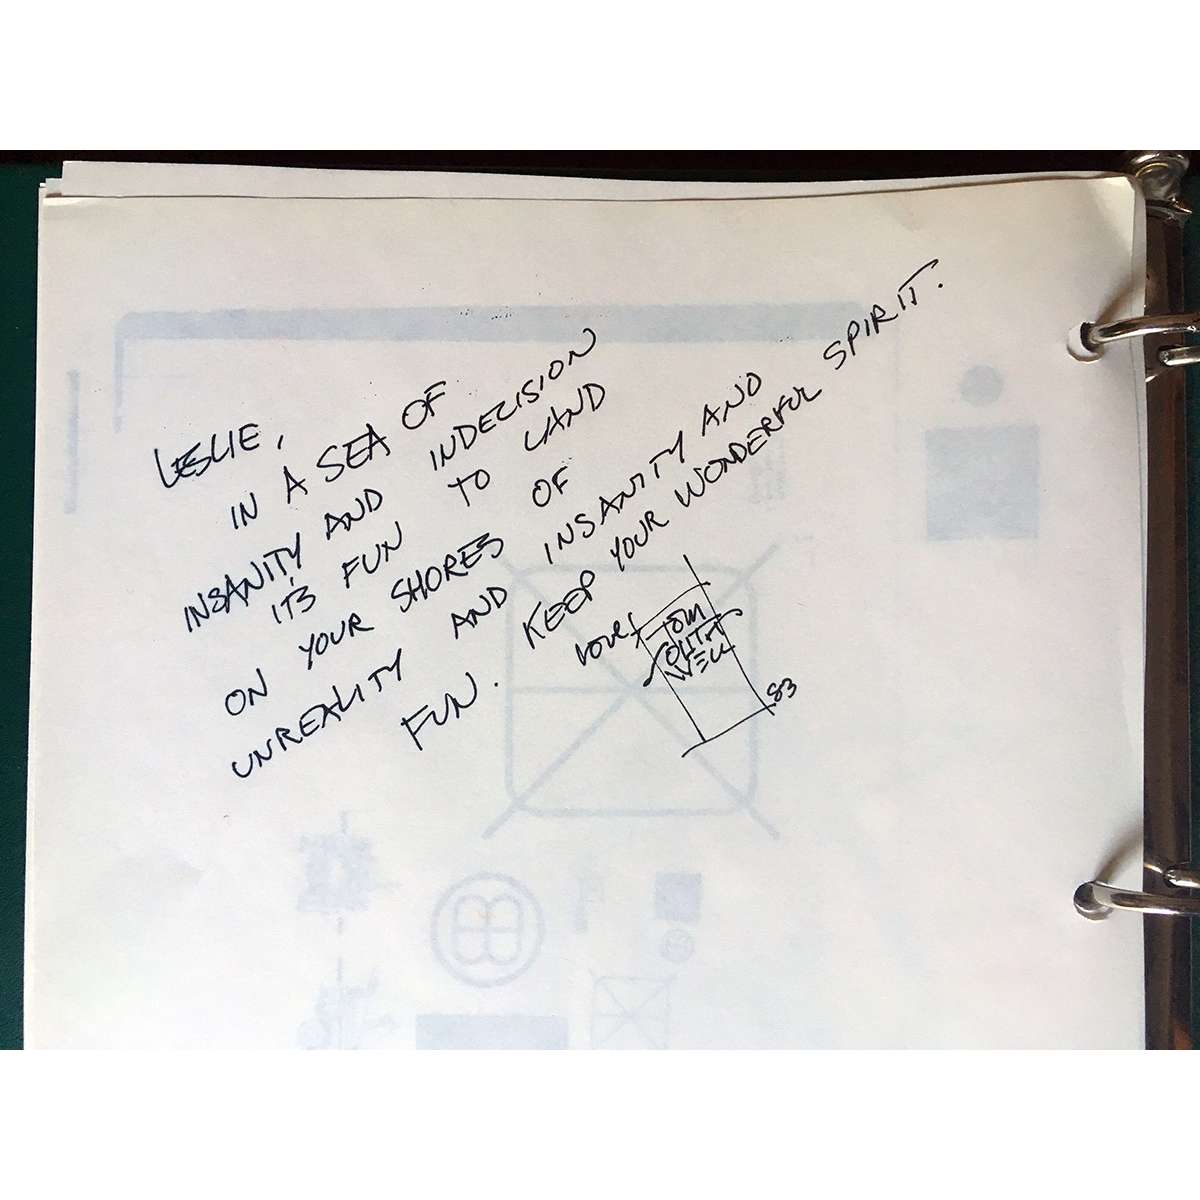 LESLIE,
IN A SEA OF
INSANITY AND INDECISION
ITS FUN TO LAND
ON YOUR SHORES OF
UNREALITY AND INSANITY AND
FUN. KEEP YOUR WONDERFUL SPIRIT.
Love,
83